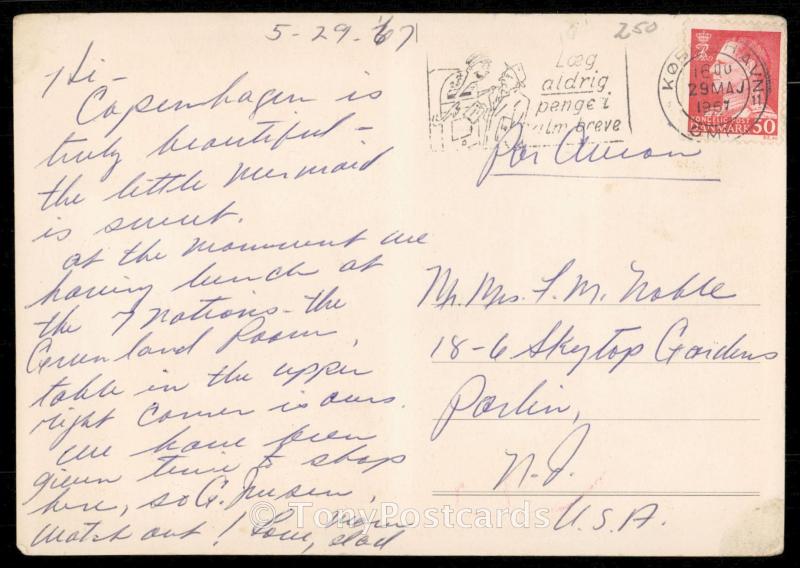 5-29-67
250
Hi-
Copenhagen is
truly beautiful-
the little mermaid
is sweet.
at the monument we
having lunch at
the 7 nations-the
Greenland Room,
table in the upper
right corner is ours.
we have been
given time to shop
here, so G. Jensen,
Watch out! Love, Mom
dad
Læg
aldrig
penge i
alm breve
KØBENHAVN
1600
29 MAJ
1967
OMK
KONGELIG POST
DANMARK 50
par Avion
Mr. Mrs. F. M. Noble
18-6 Skytop Gardens
Parlin,
N.J.
U.S.A.
© TonyPostcards